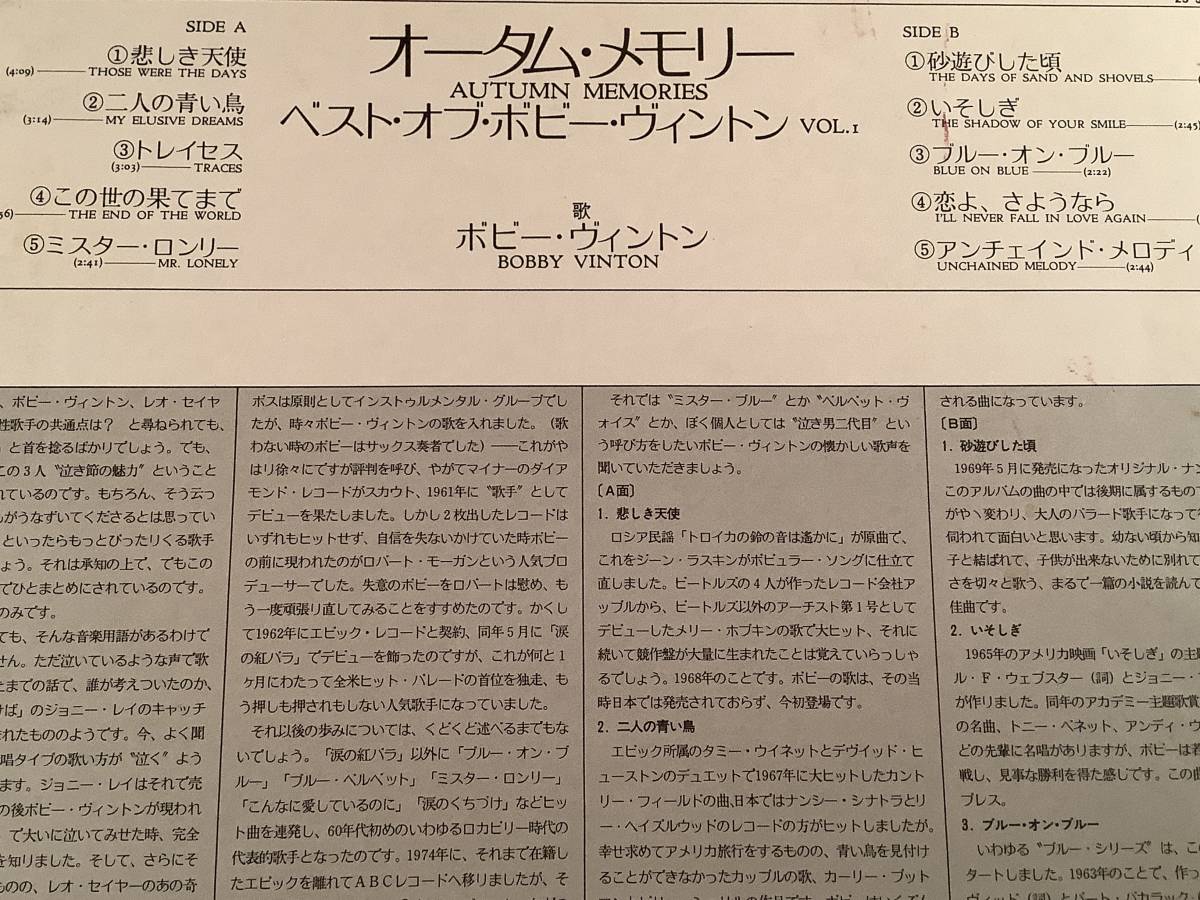 SIDE A
①悲しき天使
(4:09) THOSE WERE THE DAYS
②二人の青い鳥
(3:14) MY ELUSIVE DREAMS
③トレイセス
(3:03) TRACES
④この世の果てまで
THE END OF THE WORLD
⑤ミスター・ロンリー
(2:41) MR. LONELY
オータム・メモリー
AUTUMN MEMORIES
ベスト・オブ・ボビー・ヴィントン VOL.1
歌
ボビー・ヴィントン
BOBBY VINTON
SIDE B
①砂遊びした頃
THE DAYS OF SAND AND SHOVELS
②いそしぎ
THE SHADOW OF YOUR SMILE (2:45)
③ブルー・オン・ブルー
BLUE ON BLUE (2:22)
④恋よ、さようなら
I'LL NEVER FALL IN LOVE AGAIN
⑤アンチェインド・メロディ
UNCHAINED MELODY (2:44)
、ボビー・ヴィントン、レオ・セイヤ
性歌手の共通点は? と尋ねられても、
と首を捻るばかりでしょう。でも、
この3人〝泣き節の魅力〟ということ
れているのです。もちろん、そう云っ
がうなずいてくださるとは思ってい
といったらもっとぴったりくる歌手
ょう。それは承知の上で、でもこの
でひとまとめにされているのです。
のみです。
ても、そんな音楽用語があるわけで
せん。ただ泣いているような声で歌
たまでの話で、誰が考えついたのか、
けば」のジョニー・レイのキャッチ
れたもののようです。今、よく聞
唱タイプの歌い方が〝泣く〟よう
ます。ジョニー・レイはそれで売
の後ボビー・ヴィントンが現われ
で大いに泣いてみせた時、完全
を知りました。そして、さらにそ
ものの、レオ・セイヤーのあの奇
ボスは原則としてインストゥルメンタル・グループでし
たが、時々ボビー・ヴィントンの歌を入れました。(歌
わない時のボビーはサックス奏者でした)——これがや
はり徐々にですが評判を呼び、やがてマイナーのダイア
モンド・レコードがスカウト、1961年に〝歌手〟として
デビューを果たしました。しかし2枚出したレコードは
いずれもヒットせず、自信を失ないかけていた時ボビー
の前に現われたのがロバート・モーガンという人気プロ
デューサーでした。失意のボビーをロバートは慰め、も
う一度頑張り直してみることをすすめたのです。かくし
て1962年にエピック・レコードと契約、同年5月に「涙
の紅バラ」でデビューを飾ったのですが、これが何と1
ヶ月にわたって全米ヒット・パレードの首位を独走、も
う押しも押されもしない人気歌手になっていました。
それ以後の歩みについては、くどくど述べるまでもな
いでしょう。「涙の紅バラ」以外に「ブルー・オン・ブ
ルー」「ブルー・ベルベット」「ミスター・ロンリー」
「こんなに愛しているのに」「涙のくちづけ」などヒッ
ト曲を連発し、60年代初めのいわゆるロカビリー時代の
代表的歌手となったのです。1974年に、それまで在籍し
たエピックを離れてABCレコードへ移りましたが、そ
それでは〝ミスター・ブルー〟とか〝ベルベット・ヴ
ォイス〟とか、ぼく個人としては〝泣き男二代目〟とい
う呼び方をしたいボビー・ヴィントンの懐かしい歌声を
聞いていただきましょう。
〔A面〕
1. 悲しき天使
ロシア民謡「トロイカの鈴の音は遙かに」が原曲で、
これをジーン・ラスキンがポピュラー・ソングに仕立て
直しました。ビートルズの4人が作ったレコード会社ア
ップルから、ビートルズ以外のアーチスト第1号として
デビューしたメリー・ホプキンの歌で大ヒット、それに
続いて競作盤が大量に生まれたことは覚えていらっしゃ
るでしょう。1968年のことです。ボビーの歌は、その当
時日本では発売されておらず、今初登場です。
2. 二人の青い鳥
エピック所属のタミー・ウイネットとデヴイッド・ヒ
ューストンのデュエットで1967年に大ヒットしたカント
リー・フィールドの曲、日本ではナンシー・シナトラとリ
ー・ヘイズルウッドのレコードの方がヒットしましたが。
幸せ求めてアメリカ旅行をするものの、青い鳥を見付け
ることができなかったカップルの歌、カーリー・プット
される曲になっています。
〔B面〕
1. 砂遊びした頃
1969年5月に発売になったオリジナル・ナン
このアルバムの曲の中では後期に属するもので
がやヽ変わり、大人のバラード歌手になって
伺われて面白いと思います。幼ない頃から知
子と結ばれて、子供が出来ないために別れて
さを切々と歌う、まるで一篇の小説を読んで
佳曲です。
2. いそしぎ
1965年のアメリカ映画「いそしぎ」の主題
ル・F・ウェブスター(詞)とジョニー・
が作りました。同年のアカデミー主題歌賞
の名曲、トニー・ベネット、アンディ・ウ
どの先輩に名唱がありますが、ボビーは若
戦し、見事な勝利を得た感じです。この曲
プレス。
3. ブルー・オン・ブルー
いわゆる〝ブルー・シリーズ〟は、この
タートしました。1963年のことで、作っ
ヴィッド(詞)とバート・バカラック